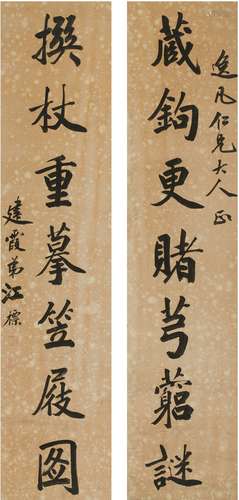 藏鉤更賭芎藭謎
凡仁兄大人正
撰杖重摹笠屐圖
建霞弟江標